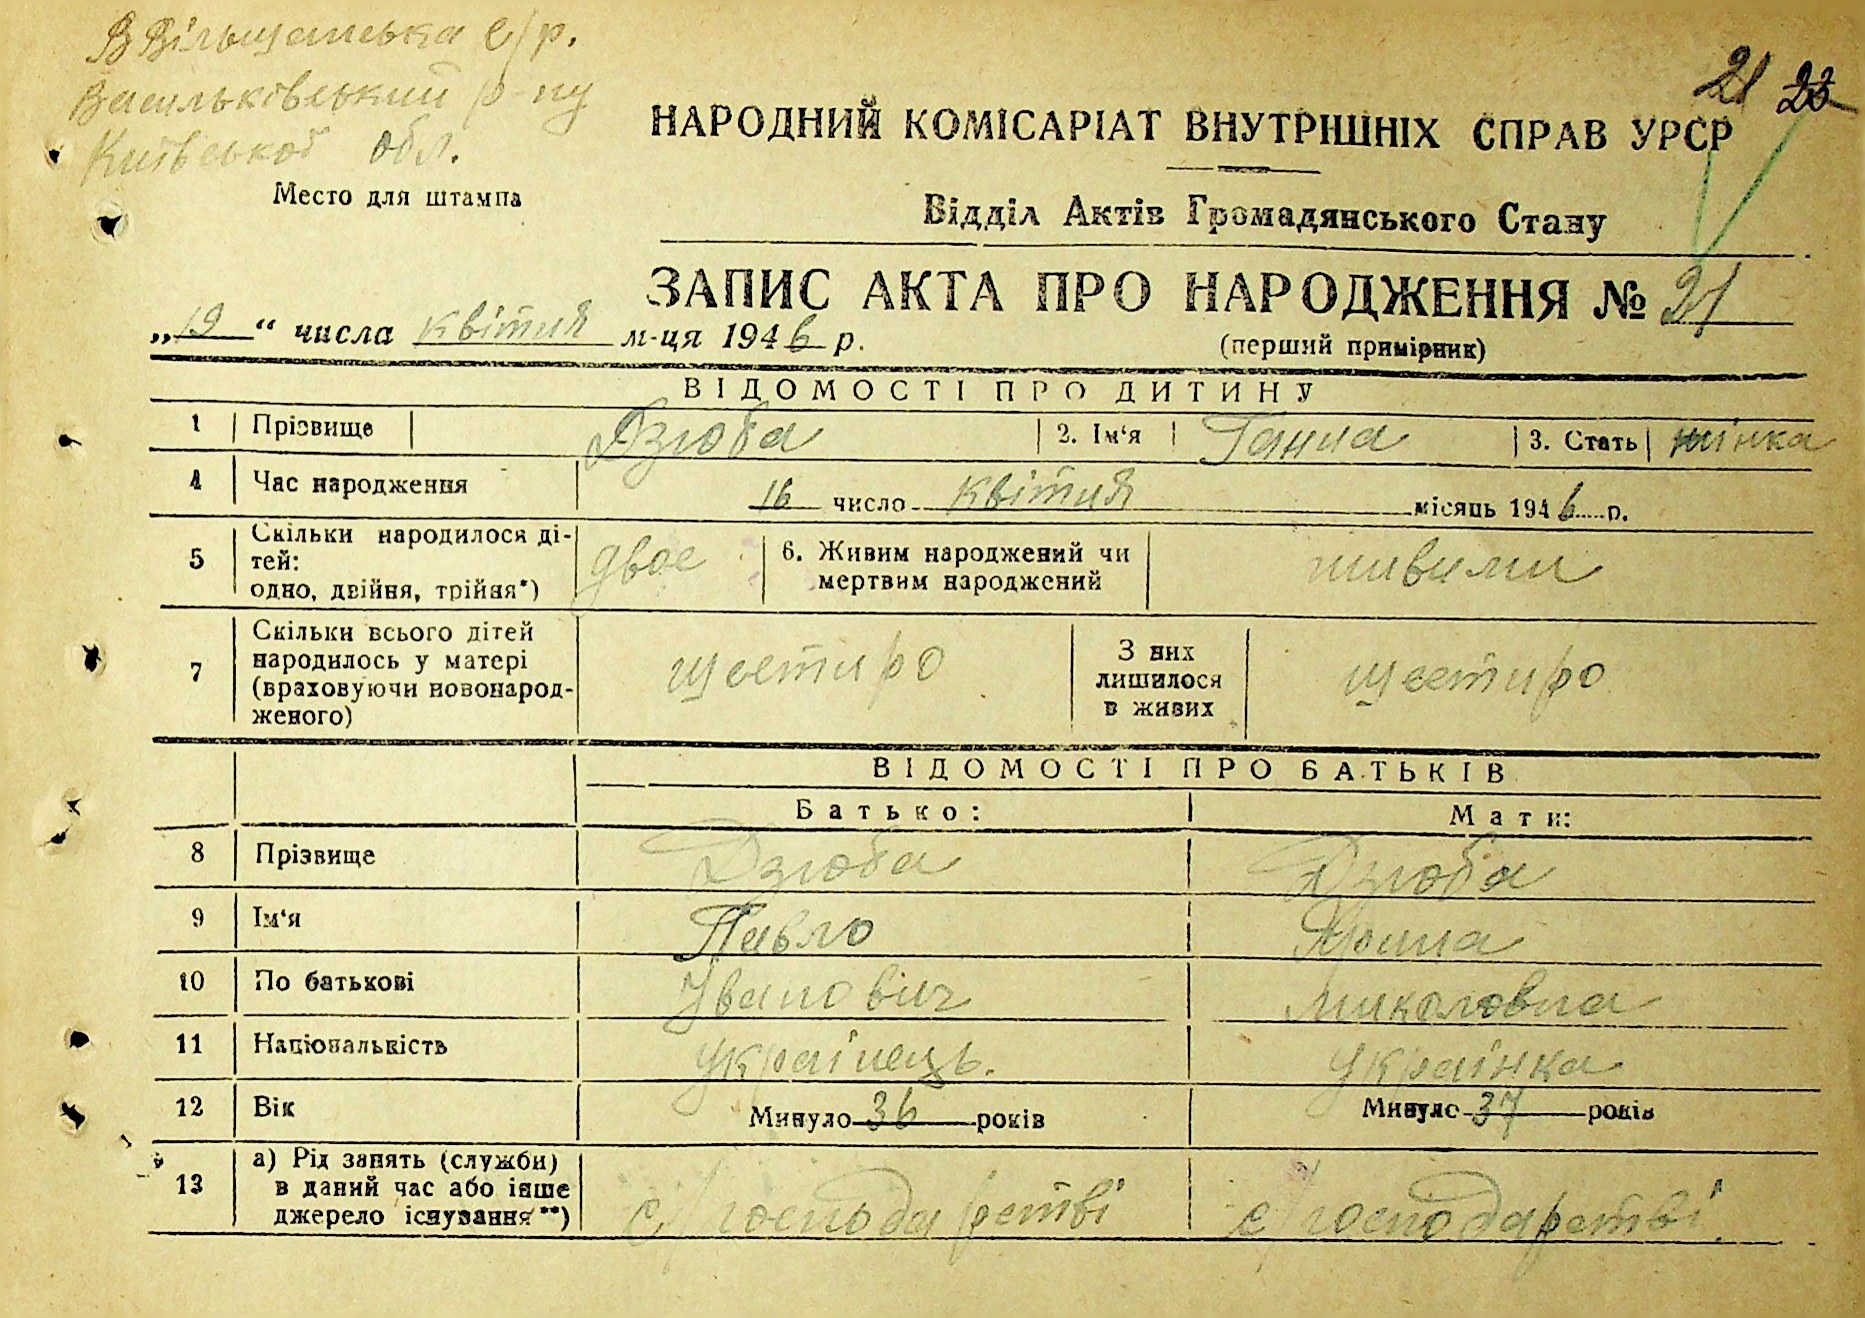 В Вільшанська с/р.
Васильківський р-ну
Київської обл.
Место для штампа
21 23
НАРОДНИЙ КОМІСАРІАТ ВНУТРІШНІХ СПРАВ УРСР
Відділ Актів Громадянського Стану
ЗАПИС АКТА ПРО НАРОДЖЕННЯ № 21
„19“ числа квітня м-ця 1946 р.
(перший примірник)
ВІДОМОСТІ ПРО ДИТИНУ
1 Прізвище Дзюба 2. Ім‘я Ганна 3. Стать жінка
4 Час народження 16 число квітня місяць 1946 р.
5 Скільки народилося ді-
тей:
одно, двійня, трійня*) двое 6. Живим народжений чи
мертвим народжений живими
7 Скільки всього дітей
народилось у матері
(враховуючи новонарод-
женого) шестиро З них
лишилося
в живих шестиро
ВІДОМОСТІ ПРО БАТЬКІВ
Батько: Мати:
8 Прізвище Дзюба Дзюба
9 Ім‘я Павло Ярина
10 По батькові Іванович Миколовна
11 Національність Українець. Українка
12 Вік Минуло 36 років Минуло 37 років
13 а) Рід занять (служби)
в даний час або інше
джерело існування**) с/господарстві с/господарстві